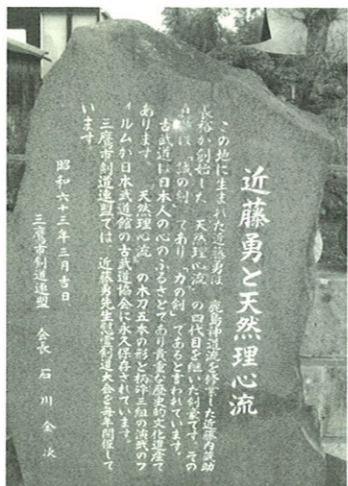 近藤勇と天然理心流
この地に生まれた近藤勇は、鹿島神道流を修業した近藤内蔵助
長裕が創始した「天然理心流」の四代目を継いだ剣豪です。その
は「誠の剣」であり「力の剣」であると言われています。
古武道は日本人の心のふるさとであり貴重な歴史的文化遺産で
あります。「天然理心流」の木刀五本の形と柄砕三組の演武のフ
ィルムが日本武道館の古武道協会に永久保存されています。
三鷹市剣道連盟では、近藤勇先生慰霊剣道大会を毎年開催して
います
昭和六十三年三月吉日
三鷹市剣道連盟 会長 石川金次